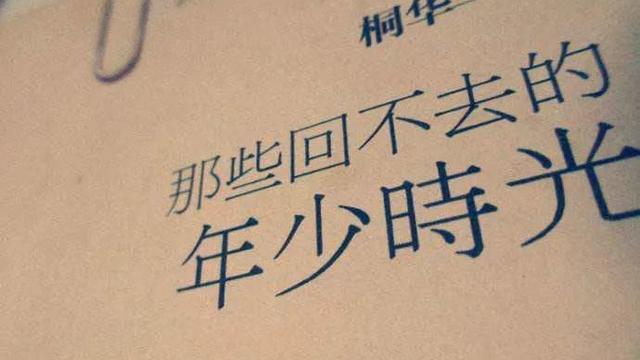 桐华
那些回不去的
年少時光